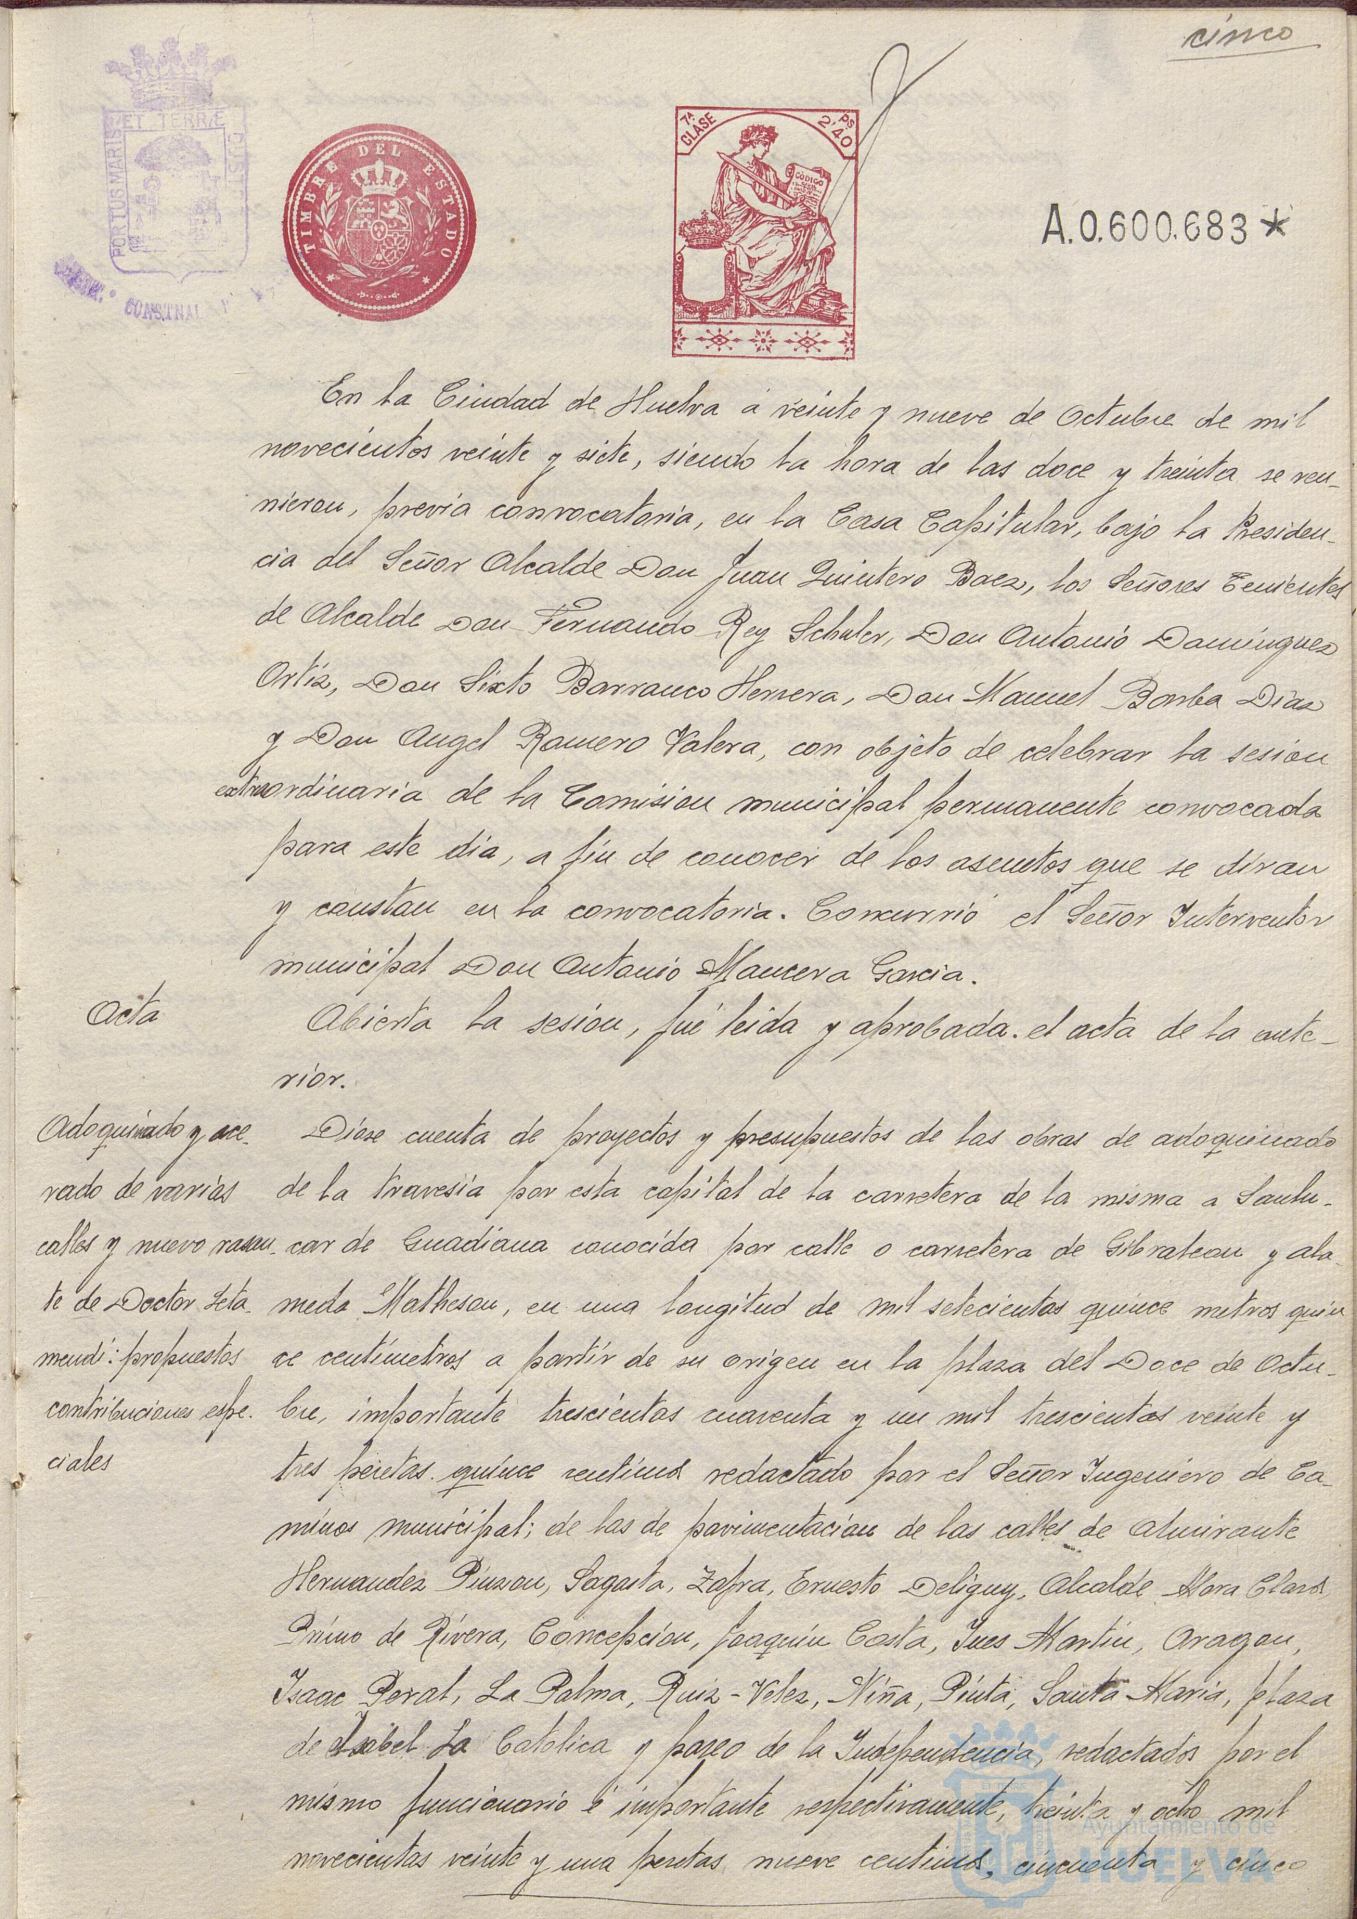 cinco
PORTUS MARIS ET TERRÆ CUST
CONSTNAL
TIMBRE DEL ESTADO
7ª CLASE
PS 2'40
CODIGO
A.0.600.683*
En la Ciudad de Huelva á veinte y nueve de Octubre de mil
novecientos veinte y siete, siendo la hora de las doce y treinta se reu-
nieron, previa convocatoria, en la Casa Capitular, bajo la Presiden-
cia del Señor Alcalde Don Juan Quintero Baez, los Señores Tenientes
de Alcalde Don Fernando Rey Schuler, Don Antonio Dominguez
Ortiz, Don Sixto Barranco Herrera, Don Manuel Borba Diaz
y Don Angel Romero Valera, con objeto de celebrar la sesion
extraordinaria de la Comision municipal permanente convocada
para este dia, a fin de conocer de los asuntos que se diran
y constan en la convocatoria. Concurrió el Señor Interventor
municipal Don Antonio Mancera Garcia.
Acta
Abierta la sesion, fué leida y aprobada el acta de la ante-
rior.
Adoquinado y ace-
rado de varias
calles y nuevo rasan-
te de Doctor Leta-
mendi: propuestos
contribuciones espe-
ciales
Diose cuenta de proyectos y presupuestos de las obras de adoquinado
de la travesia por esta capital de la carretera de la misma a Sanlu-
car de Guadiana conocida por calle o carretera de Gibraleon y ala-
meda Matheson, en una longitud de mil setecientos quince metros quin
ce centimetros a partir de su origen en la plaza del Doce de Octu-
bre, importante trescientas cuarenta y un mil trescientas veinte y
tres pesetas quince centimos redactado por el Señor Ingeniero de Ca-
minos municipal; de las de pavimentacion de las calles de Almirante
Hernandez Pinzon, Sagasta, Zafra, Ernesto Deligny, Alcalde Mora Claros
Primo de Rivera, Concepcion, Joaquin Costa, Ines Martin, Aragon,
Isaac Peral, La Palma, Ruiz-Velez, Niña, Pinta, Santa Maria, plaza
de Isabel La Catolica y paseo de la Independencia, redactados por el
mismo funcionario é importante respectivamente, treinta y ocho mil
novecientas veinte y una pesetas nueve centimos, cincuenta y cinco
Ayuntamiento de
HUELVA